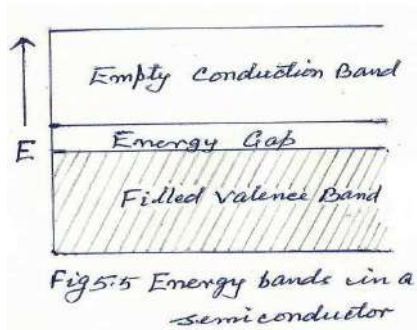 Empty Conduction Band
E
Energy Gap
Filled Valence Band
Fig 5.5 Energy bands in a
semiconductor